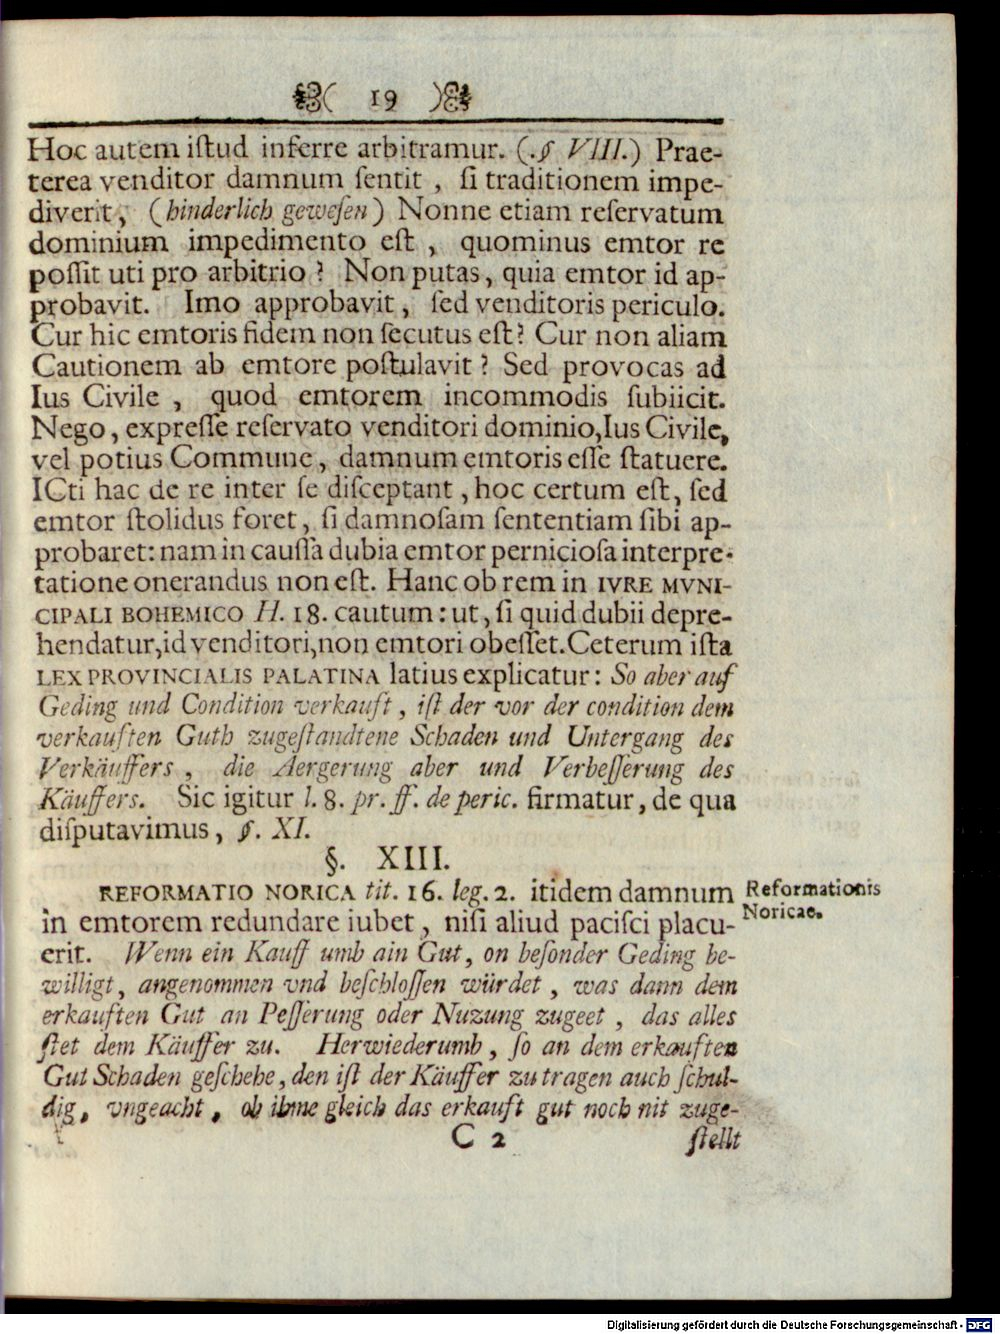 ( 19 )
Hoc autem iſtud inferre arbitramur. (.§ VIII.) Prae-
terea venditor damnum ſentit , ſi traditionem impe-
diverit, (hinderlich geweſen) Nonne etiam reſervatum
dominium impedimento eſt , quominus emtor re
poſſit uti pro arbitrio? Non putas, quia emtor id ap-
probavit. Imo approbavit, ſed venditoris periculo.
Cur hic emtoris fidem non ſecutus eſt? Cur non aliam
Cautionem ab emtore poſtulavit? Sed provocas ad
Ius Civile , quod emtorem incommodis ſubiicit.
Nego, expreſſe reſervato venditori dominio, Ius Civile,
vel potius Commune, damnum emtoris eſſe ſtatuere.
ICti hac de re inter ſe diſceptant, hoc certum eſt, ſed
emtor ſtolidus foret, ſi damnoſam ſententiam ſibi ap-
probaret: nam in cauſſa dubia emtor pernicioſa interpre-
tatione onerandus non eſt. Hanc ob rem in IVRE MVNI-
CIPALI BOHEMICO H. 18. cautum: ut, ſi quid dubii depre-
hendatur, id venditori, non emtori obeſſet. Ceterum iſta
LEX PROVINCIALIS PALATINA latius explicatur: So aber auf
Geding und Condition verkauft, iſt der vor der condition dem
verkauften Guth zugeſtandtene Schaden und Untergang des
Verkäuffers , die Aergerung aber und Verbeſſerung des
Käuffers. Sic igitur l. 8. pr. ff. de peric. firmatur, de qua
diſputavimus, §. XI.
§. XIII.
REFORMATIO NORICA tit. 16. leg. 2. itidem damnum
in emtorem redundare iubet, niſi aliud paciſci placu-
erit. Wenn ein Kauff umb ain Gut, on beſonder Geding be-
willigt, angenommen vnd beſchloſſen würdet, was dann dem
erkauften Gut an Peſſerung oder Nuzung zugeet , das alles
ſtet dem Käuffer zu. Herwiederumb, ſo an dem erkauften
Gut Schaden geſchehe, den iſt der Käuffer zu tragen auch ſchul-
dig, vngeacht, ob ihme gleich das erkauft gut noch nit zuge-
C 2 ſtellt
Reformationis
Noricae.
Digitalisierung gefördert durch die Deutsche Forschungsgemeinschaft - DFG